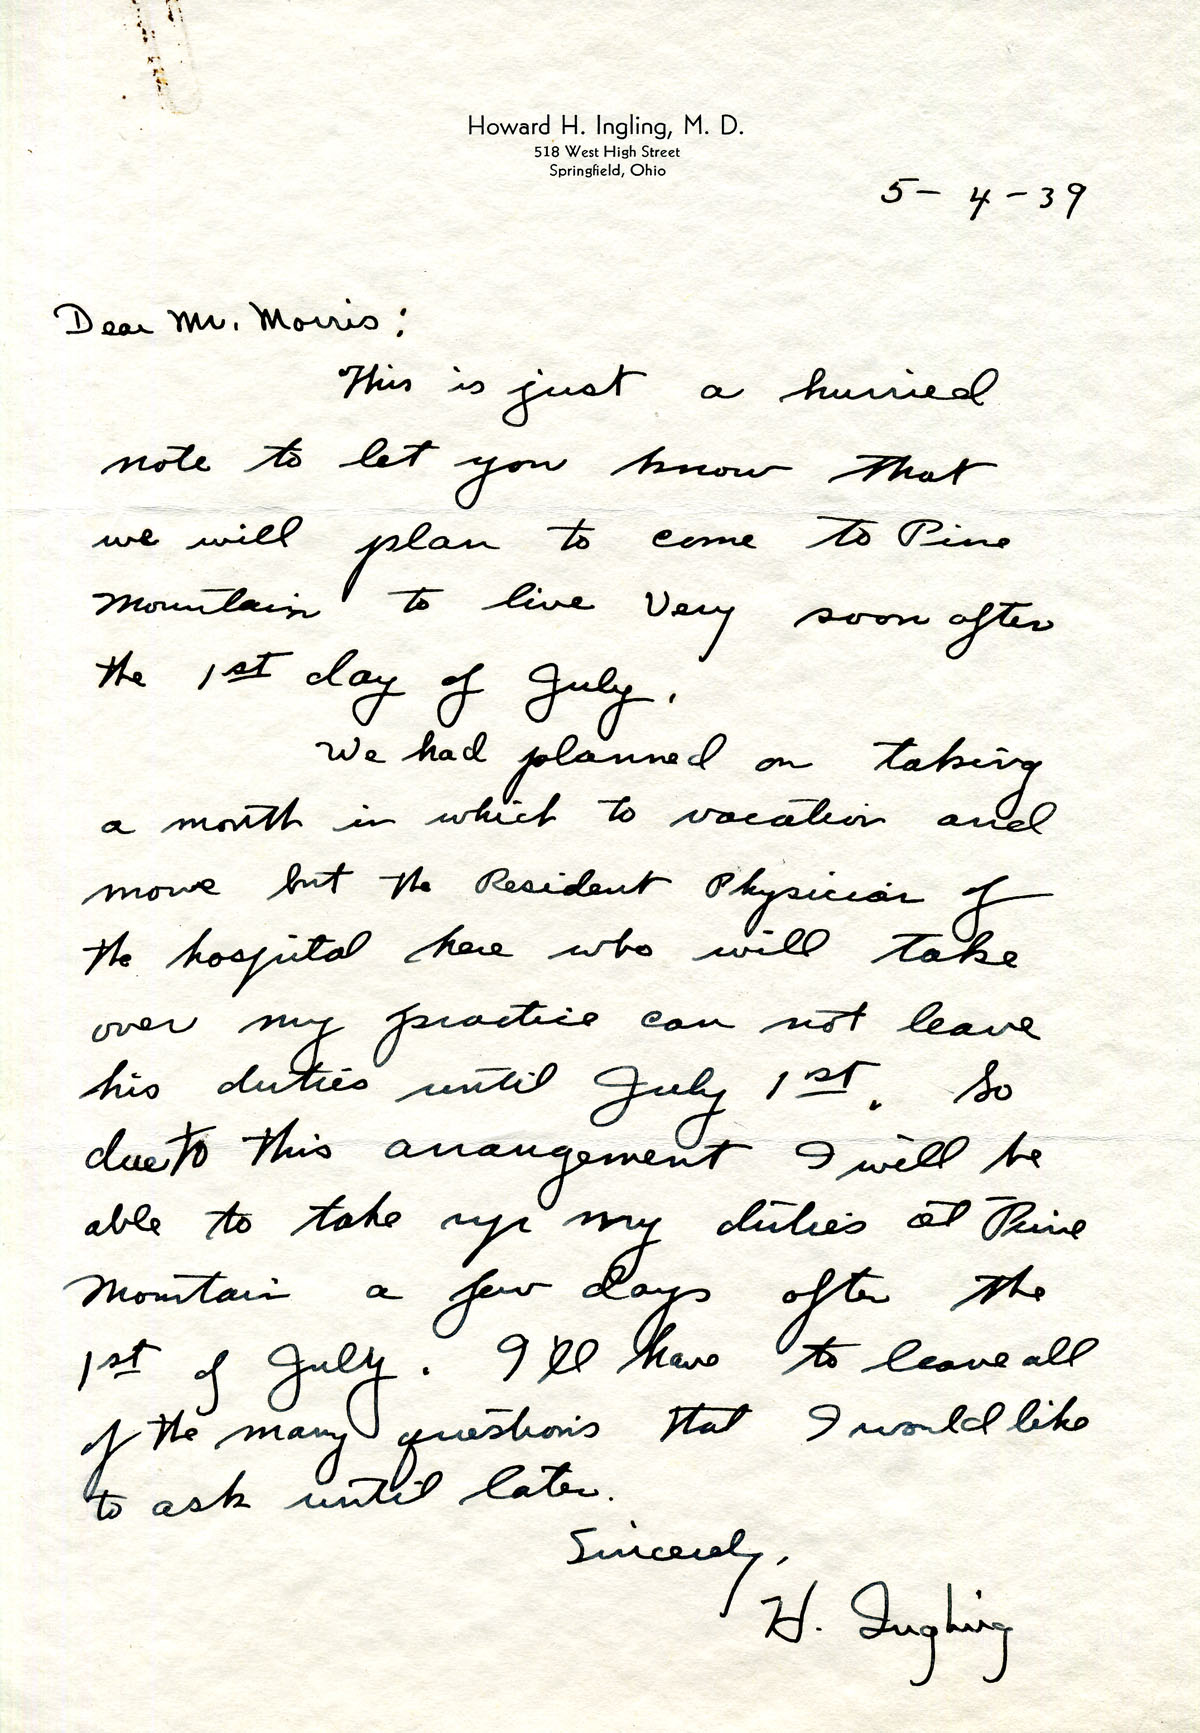 Howard H. Ingling, M. D.
518 West High Street
Springfield, Ohio
5- 4-39
Dear Mr. Morris:
This is just a hurried
note to let you know that
we will plan to come to Pine
Mountain to live very soon after
the 1st day of July.
We had planned on taking
a month in which to vacation and
move but the Resident Physician of
the hospital here who will take
over my practice can not leave
his duties until July 1st. So
due to this arrangement I will be
able to take up my duties at Pine
Mountain a few days after the
1st of July. I'll have to leave all
of the many questions that I would like
to ask until later.
Sincerely,
H. Ingling